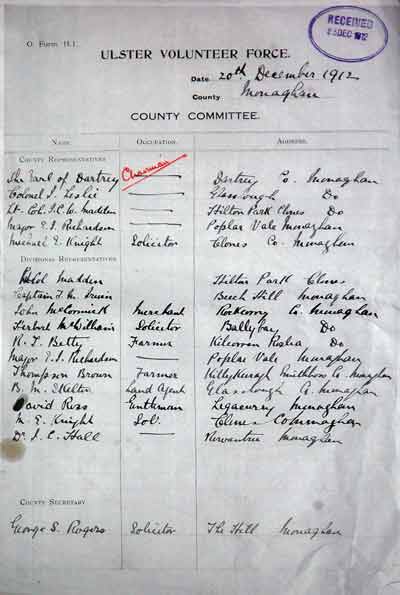 O. Form H.1.
RECEIVED
DEC 1912
ULSTER VOLUNTEER FORCE.
Date 20th December 1912
County Monaghan
COUNTY COMMITTEE.
NAME. OCCUPATION. ADDRESS.
COUNTY REPRESENTATIVES
The Earl of Dartrey Chairman Dartrey Co. Monaghan
Colonel J. Leslie — Glasslough Do
Lt. Col. J.C.W. Madden — Hilton Park Clones Do
Major E.J. Richardson — Poplar Vale Monaghan
Michael E. Knight Solicitor Clones Co. Monaghan
DIVISIONAL REPRESENTATIVES
Col Madden Hilton Park Clones
Captain Irwin Beech Hill Monaghan
John McCormick Merchant Co. Monaghan
Herbert McWilliam Solicitor Ballybay Do
R. J. Betty Farmer Do
Major E.J. Richardson — Poplar Vale Monaghan
Thompson Brown Farmer Smithboro Co Monaghan
B. M. Skelton Land Agent Glasslough Co. Monaghan
David Ross Gentleman Legacurry Monaghan
M. E. Knight Sol. Clones Co Monaghan
Dr. J. C. Hall — Monaghan
COUNTY SECRETARY
George S. Rogers Solicitor The Hill Monaghan